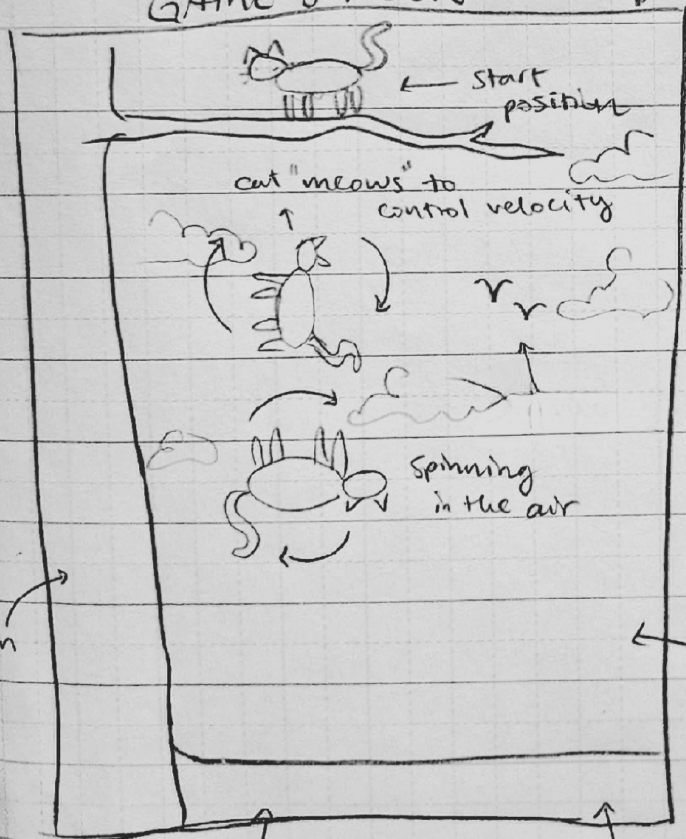 GAME
start
position
cat "meows" to
control velocity
spinning
in the air
n